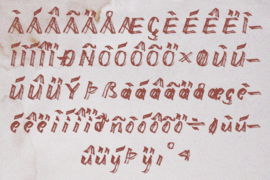 ÀÁÂÃÄÅÆÇÈÉÊËÌ-
ÍÎÏÐÑÒÓÔÕÖ×ØÙÚ-
ÛÜÝÞßàáâãäåæçè-
éêëìíîïðñòóôõö÷øùú-
ûüýþÿı°4